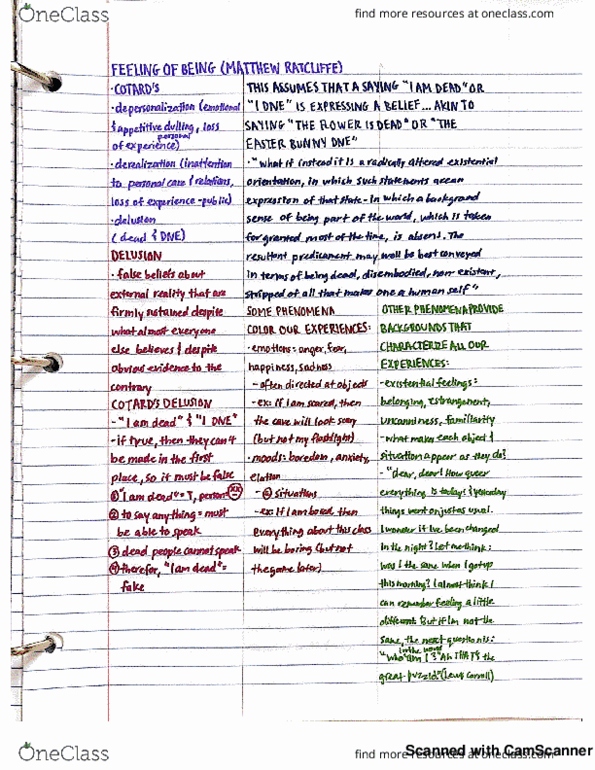 OneClass
find more resources at oneclass.com
FEELING OF BEING (MATTHEW RATCLIFFE)
·COTARD'S
·depersonalization (emotional
& appetitive dulling, loss
personal
of experience)
·derealization (inattention
to personal care & relations,
loss of experience-public)
·delusion
(dead & DNE)
DELUSION
·false beliefs about
external reality that are
firmly sustained despite
what almost everyone
else believes & despite
obvious evidence to the
contrary
COTARD'S DELUSION
-"I am dead" & "I DNE"
-if true, then they can't
be made in the first
place, so it must be false
① "I am dead" = T, person=
② to say anything = must
be able to speak
③ dead people cannot speak
④ therefor, "I am dead" =
fake
THIS ASSUMES THAT A SAYING "I AM DEAD" OR
"I DNE" IS EXPRESSING A BELIEF... AKIN TO
SAYING "THE FLOWER IS DEAD" OR "THE
EASTER BUNNY DNE"
·"what if instead it is a radically altered existential
orientation, in which such statements are an
expression of that state-in which a background
sense of being part of the world, which is taken
for granted most of the time, is absent. The
resultant predicament may well be best conveyed
in terms of being dead, disembodied, non-existent,
stripped of all that makes one a human self"
SOME PHENOMENA
COLOR OUR EXPERIENCES:
·emotions: anger, fear,
happiness, sadness
-often directed at objects
-ex: If I am scared, then
the cave will look scary
(but not my flashlight)
·moods: boredom, anxiety,
elation
situations
-ex: If I am bored then
everything about this class
will be boring (but not
the game later)
OTHER PHENOMENA PROVIDE
BACKGROUNDS THAT
CHARACTERIZE ALL OUR
EXPERIENCES:
-existential feelings:
belonging, estrangement,
uncanniness, familiarity
-what makes each object &
situation appear as they do?
-"dear, dear! How queer
everything is today! & yesterday
things went on just as usual.
I wonder if I've been changed
in the night? Let me think:
was I the same when I got up
this morning? I almost think I
can remember feeling a little
different. But if I'm not the
same, the next question is:
in the world
"Who am I?" Ah THAT'S the
great puzzle!" (Lewis Carroll)
OneClass
find more resources at oneclass.com
Scanned with CamScanner